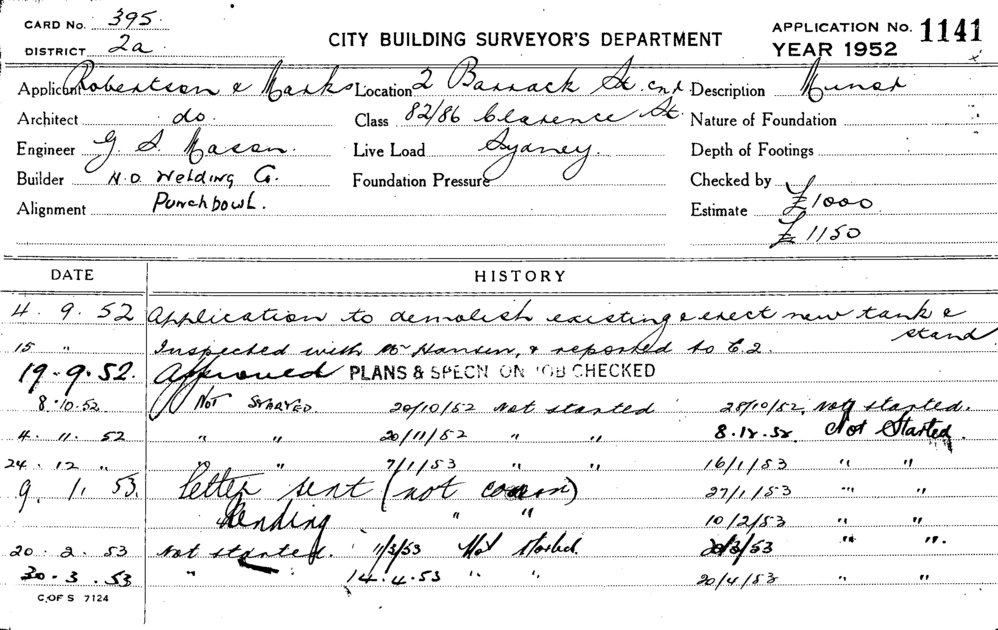 CARD No. 395
DISTRICT 2a
CITY BUILDING SURVEYOR'S DEPARTMENT
APPLICATION No. 1141
YEAR 1952
Applicant Robertson & Marks Location 2 Barrack St. cnr Description Minor
Architect do. Class 82/86 Clarence St. Nature of Foundation
Engineer G. S. Mason. Live Load Sydney. Depth of Footings
Builder N.D. Welding Co. Foundation Pressure Checked by
Alignment Punchbowl. Estimate £1000
£1150
DATE HISTORY
4. 9. 52 Application to demolish existing & erect new tank &
stand
15 " Inspected with Mr Hansen, & reported to E.2.
19-9-52. Approved PLANS & SPECN ON JOB CHECKED
8.10.52 Not STARTED. 20/10/52 Not started 28/10/52, Not started.
4. 11. 52 " " 20/11/52 " " 8.12.52. Not Started.
24. 12 " " " 7/1/53 " " 16/1/53 " "
9. 1. 53. Letter sent (not common) 27/1/53 " "
Pending " " 10/2/53 " "
20. 2. 53 Not started. 11/3/53 Not started. /3/53 " ".
30. 3. 53 " " 14.4.53 " " 20/4/53 " "
C. OF S 7124